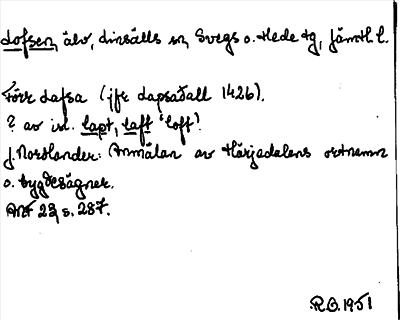 dofsen, älv, Svegs o. Hede tg, Jämtl. l.
Förr dafsa (jfr dapsaðall 1426).
? av isl. lapt, laft 'loft'?
J. Nordlander: Anmälan av Härjedalens ortnamn
o. bygdesägner.
ANF 23, s. 287.
R.O. 1951